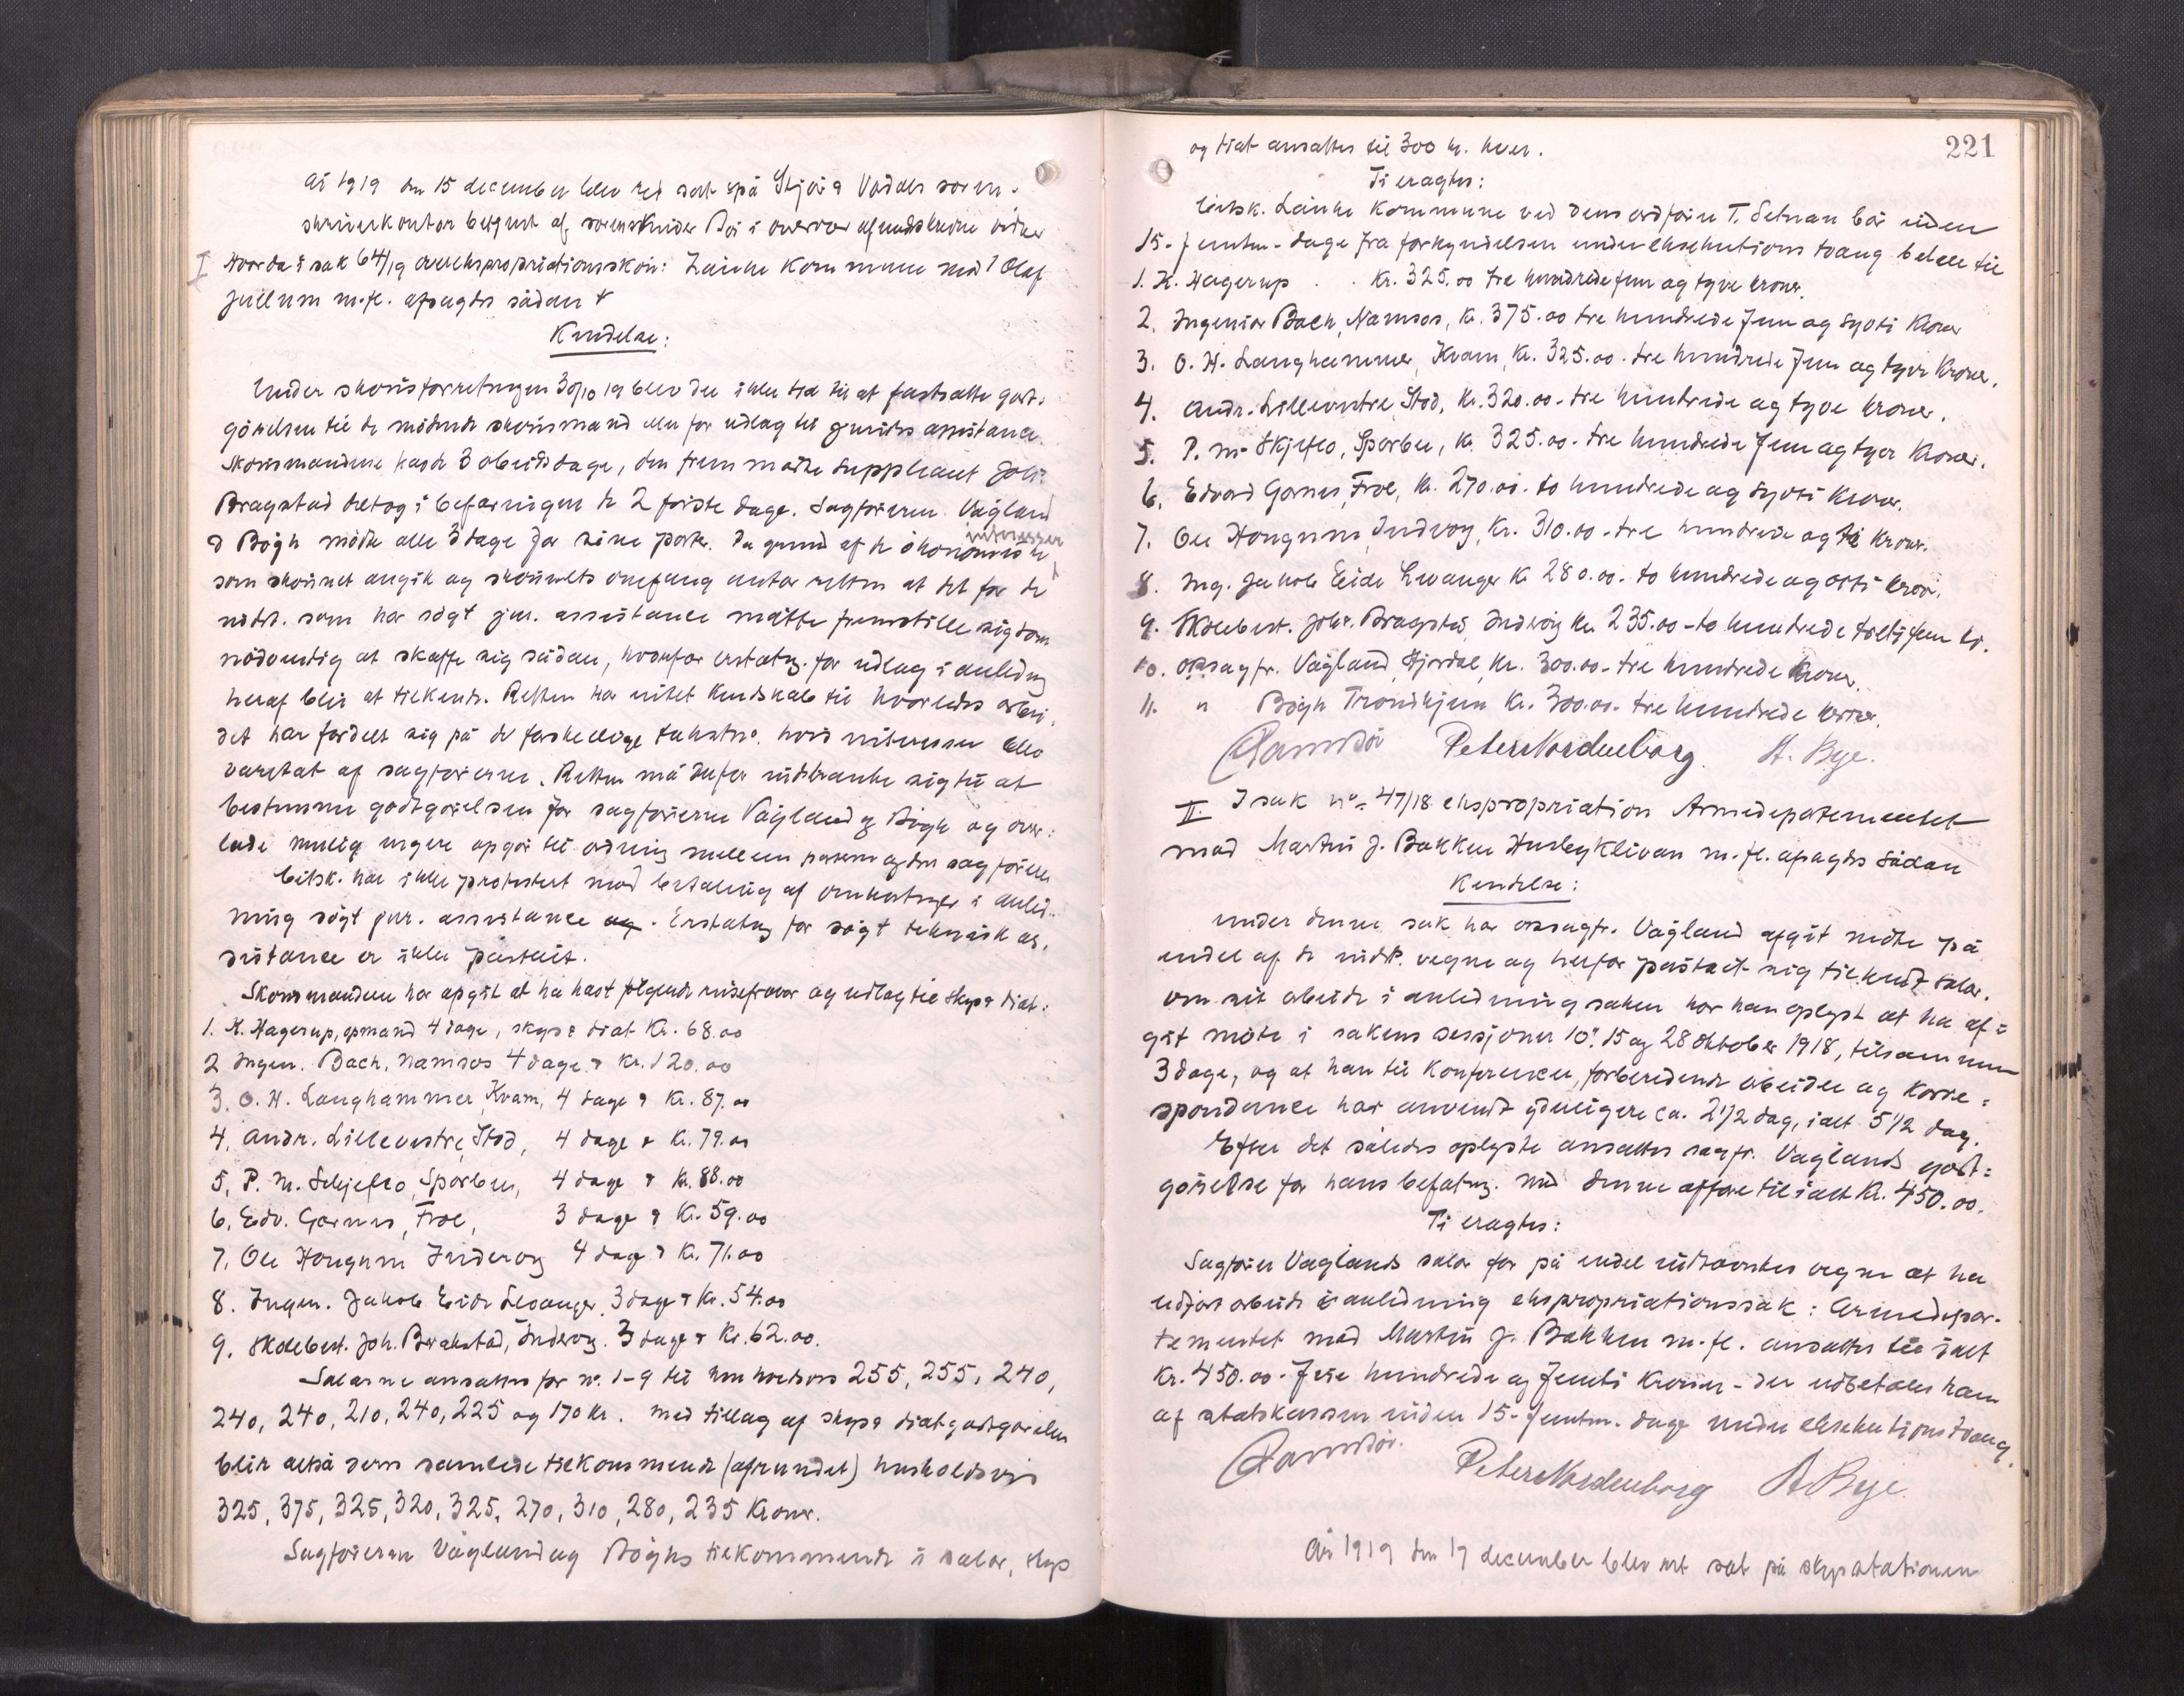 År 1919 den 15 december blev ret sat på Stjør & Vædals soren-
skriverkontor betjent af sorenskriver Bøi i overvær af underskrevne vidner
I Hvorda i sak 64/19 overekspropriationsskøn: Lånke Kommune mod Olaf
Jullum m.fl. afsagdes sådan
Kendelse:
Under skønsforretningen 30/10 19 blev der ikke tid til at fastsætte godt-
gørelsen til de mødende skønsmænd eller for udlæg til juridisk assistance.
Skønsmændene havde 3 arbeidsdage, den fremmødte suppleant Joh.
Bragstad deltog i befaringen de 2 første dage. Sagførerne Vågland
& Bøgh mødte alle 3 dage for sine parter. På grund af de økonomiske interesser
som skønnet angik og skønnets omfang antar retten at det for de
indst. som har søgt jur. assistance måtte fremstille sig som
nødvendig at skaffe sig sådan, hvorfor erstatng. for udlæg i anledng
heraf blir at tilkende. Retten har intet kendskab til hvorledes arbei-
det har fordelt sig på de forskellige takstnr. hvis interesser blev
varetat af sagførerne. Retten må derfor indskrænke sig til at
bestemme godtgørelsen for sagførerne Vågland og Bøgh og over-
lade mulig videre opgør til ordning mellem parterne og den sagfører
Citsk. har ikke protestert mod betaling af omkostninger i anled-
ning søgt jur. assistance. Erstatng for søgt teknisk as-
sistance er ikke påståt.
Skønsmændene har opgit at ha havt følgende reisefravær og udlæg til skyss & diæt:
1. K. Hagerup, opmand 4 dage, skyss & diæt Kr. 68.00
2 Ingen. Bach, Namsos 4 dage & Kr. 120.00
3. O. H. Langhammer, Kvam, 4 dage & Kr. 87.00
4. Andr. Lillevestre, Stod, 4 dage & Kr. 79.00
5. P. M. Skjefto, Sparbu, 4 dage & Kr. 88.00
6. Edv. Garnes, Frol, 3 dage & Kr. 59.00
7. Ole Hongum Inderøy 4 dage & Kr. 71.00
8. Ingen. Jakob Eide Levanger 3 dage & Kr. 54.00
9. Skolebest. Joh. Brakstad, Inderøy. 3 dage & Kr. 62.00.
Salærne ansættes for nr. 1-9 til henholdsvis 255, 255, 240,
240, 240, 210, 240, 225 og 170 kr. Med tillæg af skyss & diætgodtgørelsen
blir altså deres samlede tilkommende (afrundet) henholdsvis
325, 375, 325, 320, 325, 270, 310, 280, 235 Kroner.
Sagførerne Vågland og Bøghs tilkommende i salær, skyss
221
og diæt ansættes til 300 kr. hver.
Ti eragtes:
Citsk. Lånke Kommune ved dens ordfører T. Setnan bør inden
15 - femten - dage fra forkyndelsen under eksekutions tvang betale til
1. K. Hagerup . . Kr. 325.00 tre hundrede fem og tyve kroner.
2. Ingeniør Bach, Namsos, Kr. 375.00 tre hundrede fem og sytti Kroner
3. O. H. Langhammer, Kvam, Kr. 325.00. tre hundrede fem og tyve Kroner.
4. Andr. Lillevestre, Stod, Kr. 320.00 - tre hundrede og tyve kroner.
5. P. M. Skjefto, Sparbu, Kr. 325.00 - tre hundrede fem og tyve Kroner.
6. Edvard Garnes, Frol, Kr. 270.00. to hundrede og sytti Kroner.
7. Ole Hongum, Inderøy, Kr. 310.00 - tre hundrede og ti Kroner.
8. Ing. Jakob Eide Levanger Kr 280.00. to hundrede og otti kron.
9. Skolebest. Joh. Bragstad, Inderøy Kr. 235.00 - to hundrede tretti fem kr.
10. Orsagfr. Vågland, Stjørdal, Kr. 300.00 - tre hundrede Kroner.
11. " Bøgh Trondhjem Kr. 300.00. tre hundrede kroner.
Peter Nordenborg A. Bye.
II. I sak no. 47/18 ekspropriation Armedepartementet
mod Martin J. Bakken Husbyklivan m.fl. afsagdes sådan
Kendelse:
Under denne sak har orsagfr. Vågland afgit møte på
endel af de indst. vegne og herfor påståt sig tilkendt salær.
Om sit arbeide i anledning saken har han oplyst at ha af-
git møte i sakens sessjoner 10, 15 og 28 oktober 1918, tilsammen
3 dage, og at han til Konferencer, forberedende arbeider og Korre-
spondance har anvendt yderligere ca. 2 1/2 dag, ialt 5 1/2 dag.
Efter det således oplyste ansættes sagfr. Våglands godt-
gørelse for hans befatng. med denne affære til ialt Kr. 450.00.
Ti eragtes:
Sagfører Vaglands salær for på endel indstævntes vegne at ha
udført arbeide i anledning ekspropriationssak: Armedepar-
tementet mod Martin J. Bakken m.fl. ansættes til ialt
Kr. 450.00. Fire hundrede og femti Kroner - der udbetales ham
af statskassen inden 15 - femten - dage under eksekutionstvang.
Peter Nordenborg A Bye.
År 1919 den 17 december blev ret sat på skysstationen